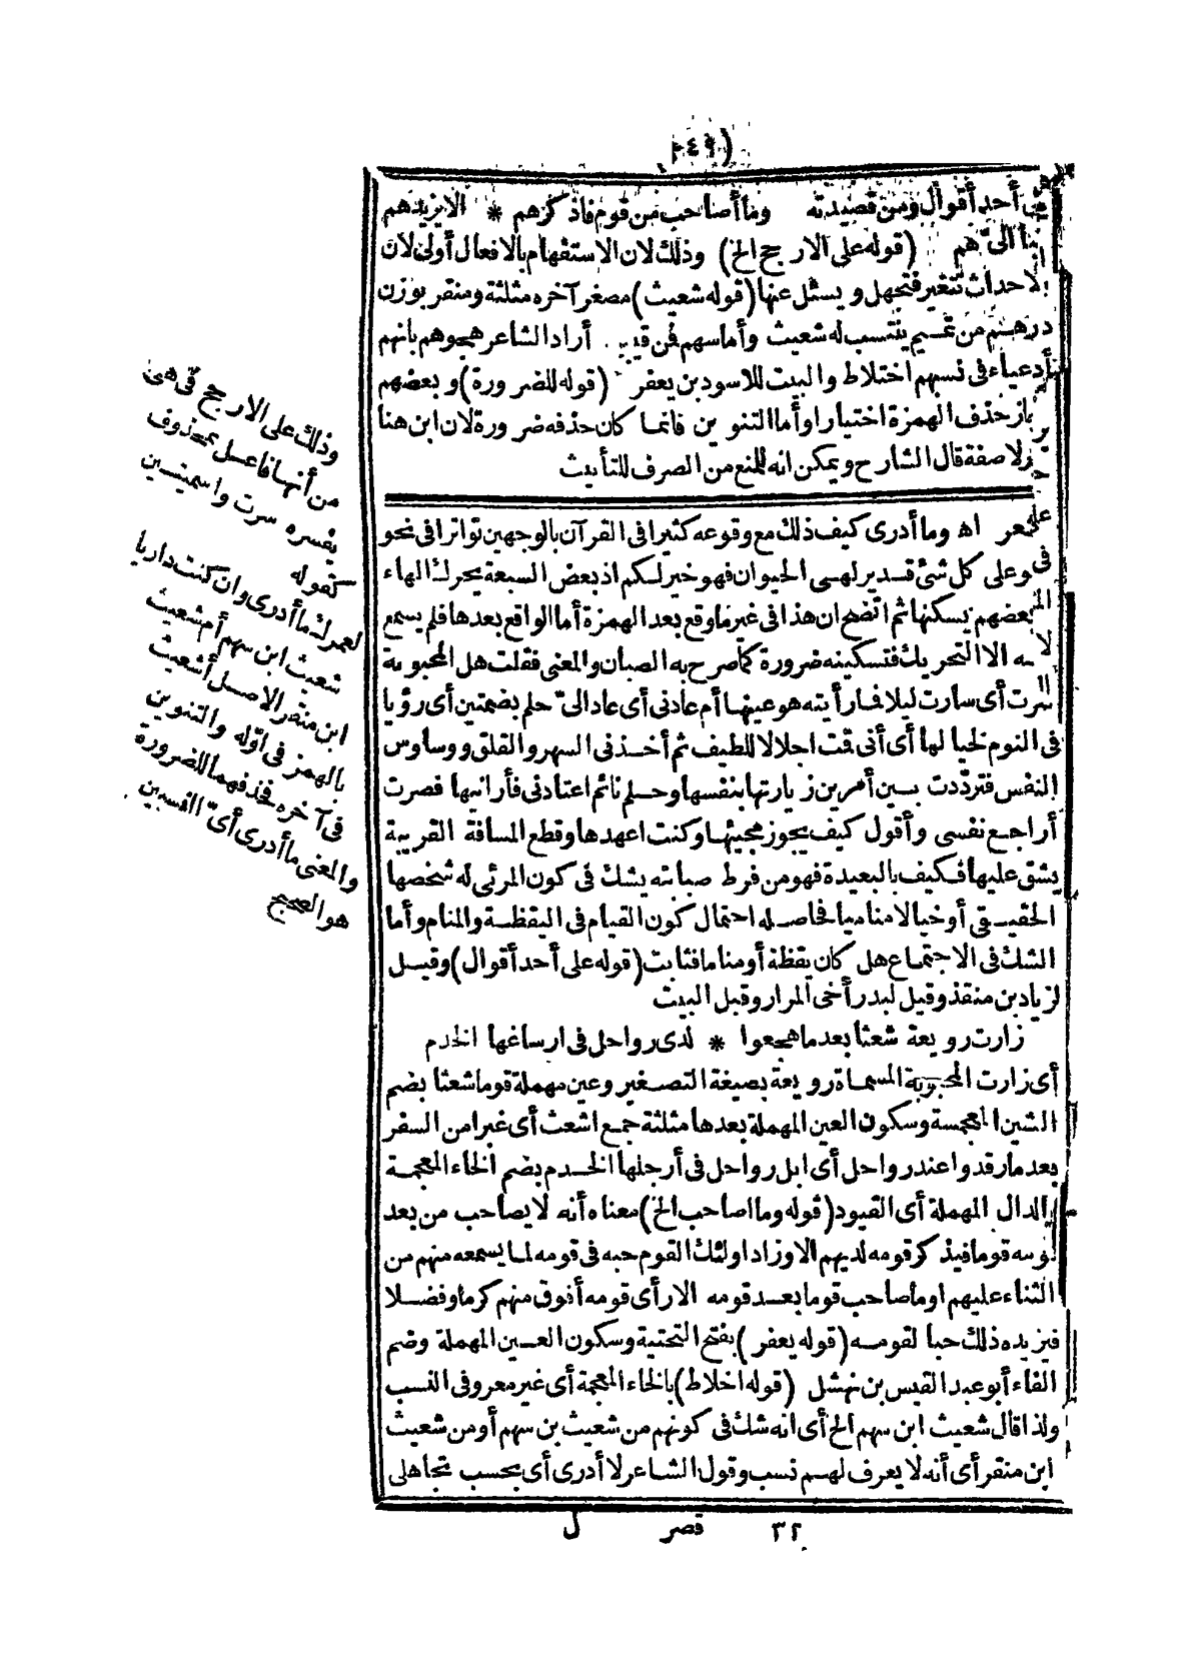 (٢٤٩)
أحد أقوال ومن قصيدته وما أصاحب من قوم فاذكرهم * الا يزيدهم
حبا الىّ هم (قوله على الارجح الخ) وذلك لان الاستفهام بالافعال أولى لان
الاحداث تتغير فتجهل ويسئل عنها (قوله شعيث) مصغر آخره مثلثة ومنقر بوزن
درهم من تميم ينتسب له شعيث وأما سهم فمن أراد الشاعر هجوهم بانهم
أدعياء فى نسبهم اختلاط والبيت للاسود بن يعفر (قوله للضرورة) وبعضهم
حذف الهمزة اختيارا وأما التنوين فانما كان حذفه ضرورة لان ابن هنا
لا صفة قال الشارح ويمكن انه للمنع من الصرف للتأنيث
اه وما أدرى كيف ذلك مع وقوعه كثيرا فى القرآن بالوجهين تواترا فى نحو
وعلى كل شئ قدير لهى الحيوان فهو خير لكم اذ بعض السبعة يحرك الهاء
وبعضهم يسكنها ثم اتضح ان هذا فى غير ما وقع بعد الهمزة أما الواقع بعدها فلم يسمع
الا التحريك فتسكينه ضرورة كما صرح به الصبان والمعنى فقلت هل المحبوبة
سرت أى سارت ليلا فما رأيته هو عينها أم عادنى أى عاد الىّ حلم بضمتين أى رؤيا
فى النوم لخيالها أى أنى قت اجلالا للطيف ثم أخذنى السهر والقلق ووساوس
النفس فترددت بين أمرين زيارتها بنفسها وحلم نائم اعتادنى فأرانيها فصرت
أراجع نفسى وأقول كيف يجوز مجيئها وكنت اعهدها وقطع المسافة القريبة
يشق عليها فكيف بالبعيدة فهو من فرط صبابته يشك فى كون المرئى له شخصها
الحقيقى أو خيالا مناميا فحاصله احتمال كون القيام فى اليقظة والمنام وأما
الشك فى الاجتماع هل كان يقظة أو مناما فثابت (قوله على أحد أقوال) وقيل
لزياد بن منقذ وقيل لبدر أخى المرار وقبل البيت
زارت رويعة شعثا بعد ما هجعوا * لدى رواحل فى ارساغها الخدم
أى زارت المحبوبة المسماة رويعة بصيغة التصغير وعين مهملة قوما شعثا بضم
الشين المعجمة وسكون العين المهملة بعدها مثلثة جمع اشعث أى غبرا من السفر
بعد ما رقدوا عند رواحل أى ابل رواحل فى أرجلها الخدم بضم الخاء المعجمة
والدال المهملة أى القيود (قوله وما اصاحب الخ) معناه أنه لا يصاحب من بعد
قومه قوما فيذكر قومه لديهم الا وزاد اولئك القوم حبه فى قومه لما يسمعه منهم من
الثناء عليهم او ما صاحب قوما بعد قومه الا رأى قومه أفوق منهم كرما وفضلا
فيزيده ذلك حبا لقومه (قوله يعفر) بفتح التحتية وسكون العين المهملة وضم
الفاء أبو عبد القيس بن نهشل (قوله اخلاط) بالخاء المعجمة أى غير معروفى النسب
ولذا قال شعيث ابن سهم الخ أى انه شك فى كونهم من شعيث بن سهم أو من شعيث
ابن منقر أى أنه لا يعرف لهم نسب وقول الشاعر لا أدرى أى بحسب تجاهلى
٣٢ قصر ل
وذلك على الارجح فى هى
من أنها فاعل بمحذوف
يفسره سرت واسميتين
كقوله
لعمرك ما أدرى وان كنت داريا
شعيث ابن سهم أم شعيث
ابن منقر الاصل أشعيث
بالهمز فى اوّله والتنوين
فى آخره فحذفهما للضرورة
والمعنى ما أدرى أىّ النسبين
هو الصحيح